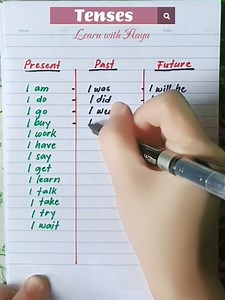 Tenses
Learn with Haya
Present Past Future
I am - I was - I will be
I do - I did
I go - I we
I buy -
I work
I have
I say
I get
I learn
I talk
I take
I try
I wait